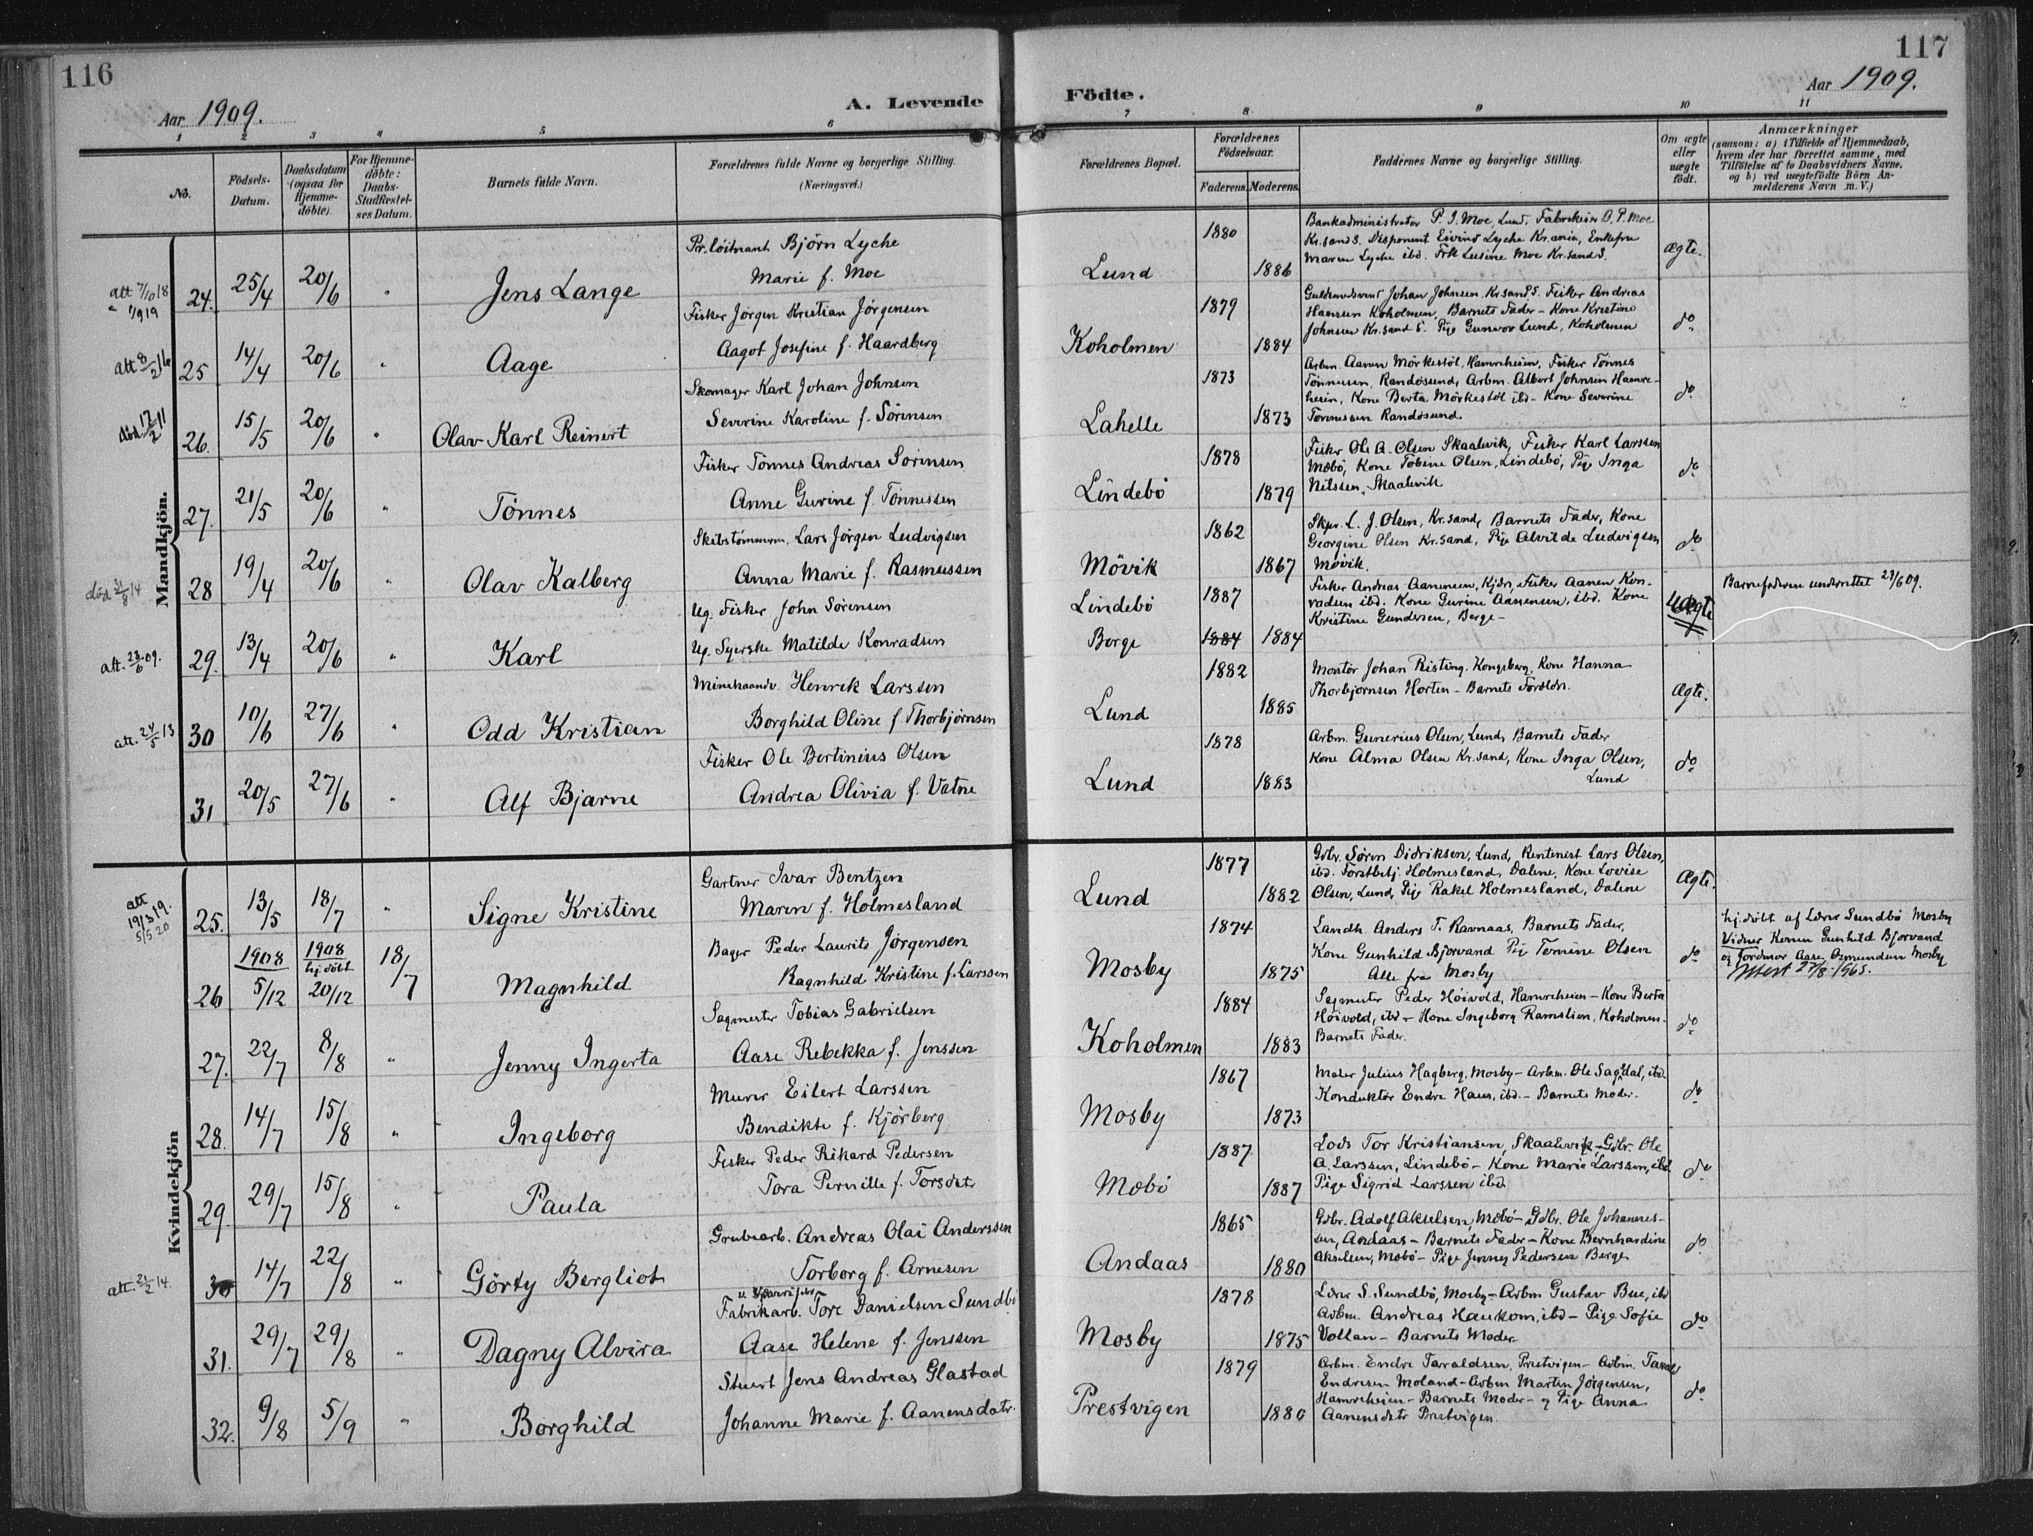 116
Aar 1909.
A. Levende
1 2 3 4 5 6
No.
Födsels-Datum.
Daabsdatum (ogsaa for Hjemmedöbte).
For Hjemmedöbte: Daabs-Stadfæstelses Datum.
Barnets fulde Navn.
Forældrenes fulde Navne og borgerlige Stilling.
(Næringsvei.)
Mandkjön.
att 7/10 18
1/9 19
24. 25/4 20/6 " Jens Lange
Pr. löitnant Bjørn Lyche
Marie f. Moe
att 8/2 16
25 14/4 20/6 " Aage
Fisker Jørgen Kristian Jørgensen
Aagot Josefine f. Haardberg
död 17/2 11
26. 15/5 20/6 " Olav Karl Reinert
Skomager Karl Johan Johnsen
Severine Karoline f. Sörensen
27. 21/5 20/6 " Tönnes
Fisker Tönnes Andreas Sörensen
Anne Gurine f. Tönnessen
död 31/8 14
28 19/4 20/6 " Olav Kalberg
Skibstömmerm. Lars Jørgen Ludvigsen
Anna Marie f. Rasmussen
att. 28/6 09.
29. 13/4 20/6 " Karl
Ug. Fisker John Sörensen
Ug. Syerske Matilde Konradsen
att. 24/5 13
30 10/6 27/6 " Odd Kristian
Henrik Larssen
Borghild Oline f. Thorbjørnsen
31 20/5 27/6 " Alf Bjarne
Fisker Ole Bertinius Olsen
Andrea Olivia f. Vatne
Kvindekjön
att 19/3 19.
5/5 20
25. 13/5 18/7 " Signe Kristine
Gartner Ivar Bentzen
Maren f. Holmesland
1908 1908
hj. döbt
26 5/12 20/12 18/7 Magnhild
Bager Peder Laurits Jørgensen
Ragnhild Kristine f. Larssen
27. 22/7 8/8 " Jenny Ingerta
Sagmester Tobias Gabrielsen
Aase Rebekka f. Jenssen
28. 14/7 15/8 " Ingeborg
Murer Eilert Larssen
Bendikte f. Kjörberg
29. 29/7 15/8 " Paula
Fisker Peder Rikard Pedersen
Tora Pernille f. Torsdtr
att. 21/2 14.
30 14/7 22/8 " Görty Bergliot
Grubearb. Andreas Olai Anderssen
Torborg f. Arnesen
31. 29/7 29/8 " Dagny Alvira
Fabrikarb. Tore Danielsen Sundbö
Aase Helene f. Jenssen
32. 9/8 5/9 " Borghild
Stuert Jens Andreas Glastad
Johanne Marie f. Aanensdatr.
117
Födte.
Aar 1909.
7 8 9 10 11
Forældrenes Bopæl.
Forældrenes Födselsaar.
Faderens. Moderens.
Faddernes Navne og borgerlige Stilling.
Om ægte eller uægte födt.
Anmærkninger
(saasom: a) i Tilfælde af Hjemmedaab,
hvem der har forrettet samme, med
Tilföielse af to Daabsvidners Navne,
og b) ved uægtefödte Börn Anmelderens Navn m. V.)
Lund 1880 1886
Bankadministrator P. I. Moe, Lund, Fabrikeier O. P. Moe
Kr.sand S. Disponent Eivind Lyche Kr.ania, Enkefru
Maren Lyche ibd. Frk Lusine Moe Kr.sand S.
ægte.
Koholmen 1879 1884
Guldsmedsvend Johan Johnsen Kr.sand S. Fisker Andreas
Hanssen Koholmen, Barnets Fader - Kone Kristine
Johnsen Kr.sand S. Pige Gunvor Lund, Koholmen
do
Lahelle 1873 1873
Arbm. Aanen Mörkestöl, Hamreheien, Fisker Tönnes
Tönnesen, Randösund, Arbm. Albert Johnsen Hamre-
heien, Kone Berta Mörkestöl ibd - Kone Severine
Tönnessen Randösund.
do
Lindebö 1878 1879
Fisker Ole A. Olsen Skaalevik, Fisker Karl Larssen
Mæbö, Kone Tobine Olsen, Lindebö, Pige Inga
Nilssen, Skaalevik
do
Mövik 1862 1867
Skpr. L. J. Olsen, Kr.sand, Barnets Fader, Kone
Georgine Olsen Kr.sand, Pige Alvilde Ludvigsen
Mövik.
do
Lindebö 1887
Berge 1884 1884
Fisker Andreas Aanensen, Kjdn, Fisker Aanen Kon-
radsen ibd. Kone Gurine Aanensen, ibd. Kone
Kristine Gundersen, Berge -
Uægte
Barnefaderen underrettet 23/6 09.
Lund 1882 1885
Montör Johan Risting, Kongsberg, Kone Hanna
Thorbjørnsen Horten - Barnets Forældre.
Ægte.
Lund 1878 1883
Arbm. Gunerius Olsen, Lund, Barnets Fader
Kone Alma Olsen Kr.sand, Kone Inga Olsen,
Lund
do
Lund 1877 1882
Gdbr. Sören Didriksen, Lund, Rentenist Lars Olsen,
ibd. Forstbetj. Holmesland, Dalene, Kone Lovise
Olsen, Lund, Pige Rakel Holmesland, Dalene
Ægte.
Mosby 1874 1875
Landh. Anders T. Ravnaas, Barnets Fader,
Kone Gunhild Bjorvand Pige Tomine Olsen
Alle fra Mosby
do
hj. döbt af Lærer Sundbö Mosby
Vidner Konen Gunhild Bjorvand
og Jordmor Aase Osmundsen Mosby
Koholmen 1884 1883
Sagmester Peder Höivold, Hamreheien - Kone Berta
Höivold, ibd - Kone Ingeborg Ramslien, Koholmen.
Barnets Fader.
do
Mosby 1867 1873
Maler Julius Hagberg, Mosby - Arbm. Ole Sagdal, ibd
Konduktör Endre Haus, ibd. - Barnets Moder.
do
Mæbö 1887 1887
Lods Tor Kristiansen, Skaalevik - Gdbr. Ole
A. Larssen, Lindebö - Kone Marie Larssen, ibd
Pige Sigrid Larssen ibd
do
Andaas 1865 1880
Gdbr. Adolf Akselsen, Mæbö - Gdbr. Ole Johannes-
sen, Andaas - Barnets Fader - Kone Bernhardine
Akselsen, Mæbö - Pige Jenney Pedersen Berge
do
Mosby 1878 1875
Lærer S. Sundbö, Mosby - Arbm Gustav Bue, ibd
Arbm. Andreas Haukom, ibd - Pige Sofie
Vollan - Barnets Moder.
do
Prestvigen 1879 1880
Arbm. Endre Taraldsen, Prestvigen - Arbm. Tarald
Endresen Moland - Arbm Martin Jörgensen,
Hamreheien - Barnets Moder - og Pige Anna
Aanensdtr Prestvigen.
do